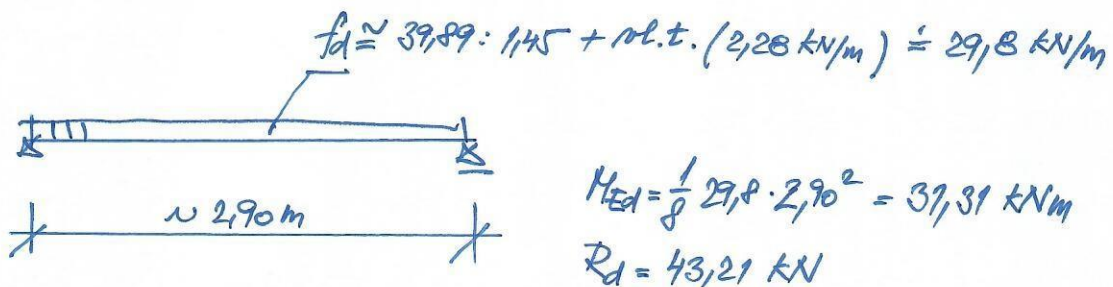 fd ≅ 39,89 : 1,45 + vl.t. (2,28 kN/m) ≐ 29,8 kN/m
~ 2,90 m
M_Ed = 1/8 29,8 · 2,90² = 31,31 kNm
R_d = 43,21 kN